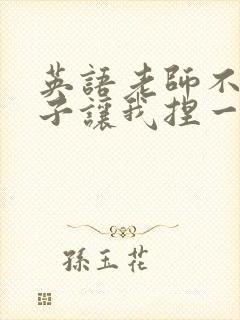 英語老師不
子讓我捏一
孫玉花